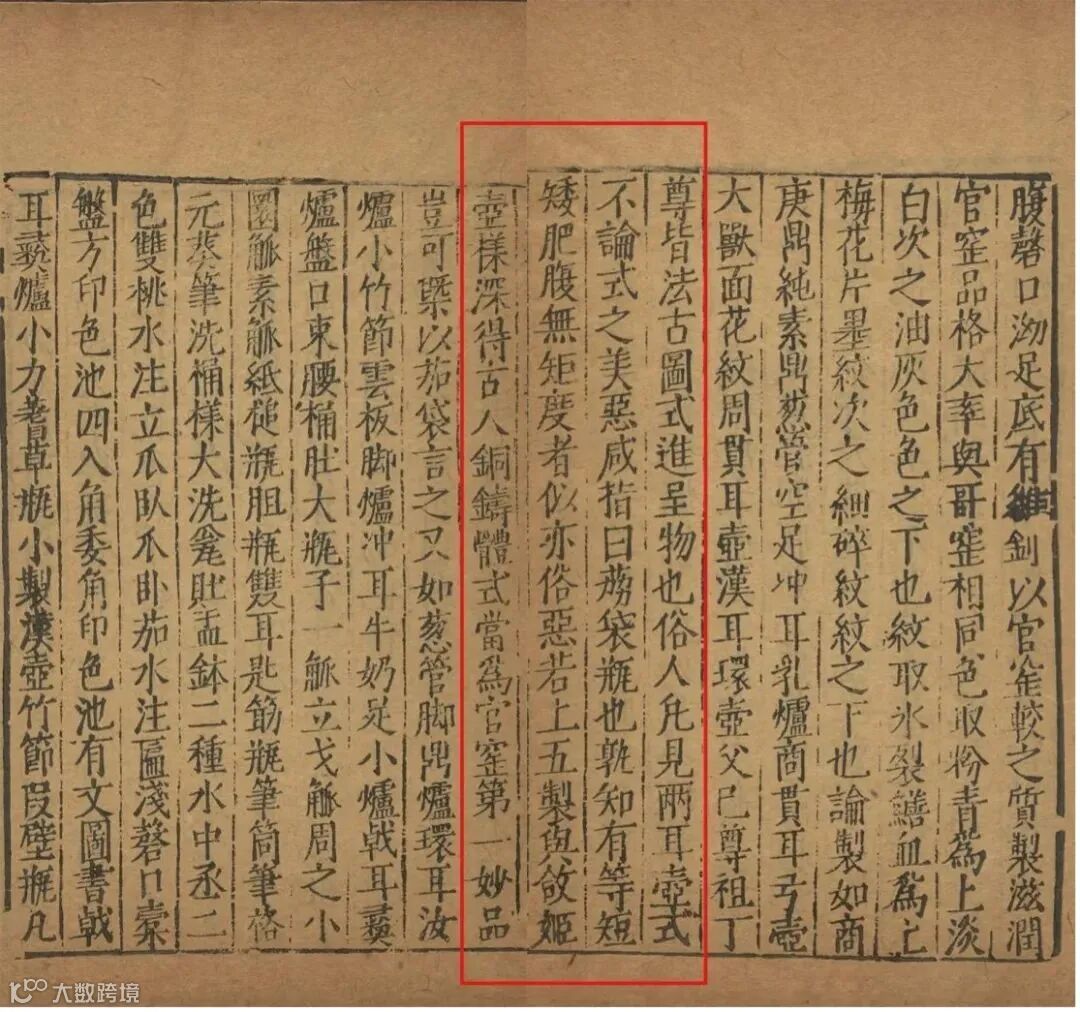 腹磬口泑足底有鐵釘以官窑較之質製滋潤
官窑品格大率與哥窑相同色取粉青為上淡
白次之油灰色色之下也紋取氷裂鱔血為上
梅花片墨紋次之細碎紋紋之下也論製如商
庚鼎純素鼎葱管空足冲耳乳爐商貫耳弓壺
大獸面花紋周貫耳壺漢耳環壺父己尊祖丁
尊皆法古圖式進呈物也俗人凢見兩耳壺式
不論式之美惡咸指曰茄袋瓶也孰知有等短
矮肥腹無矩度者似亦俗惡若上五製與敛姬
壺様深得古人銅鑄體式當為官窑第一妙品
豈可槩以茄袋言之又如葱管脚鼎爐環耳汝
爐小竹節雲板脚爐冲耳牛奶足小爐戟耳彞
爐盤口束腰桶肚大瓶子一觚立戈觚周之小
圜觚素觚紙槌瓶胆瓶雙耳匙筯瓶筆筒筆格
元葵筆洗桶様大洗瓮肚盂鉢二種水中丞二
色雙桃水注立瓜臥瓜卧茄水注匾淺磬口槖
盤方印色池四入角委角印色池有文圖書戟
耳彞爐小方蓍草瓶小製漢壺竹節段壁瓶凡
大数跨境